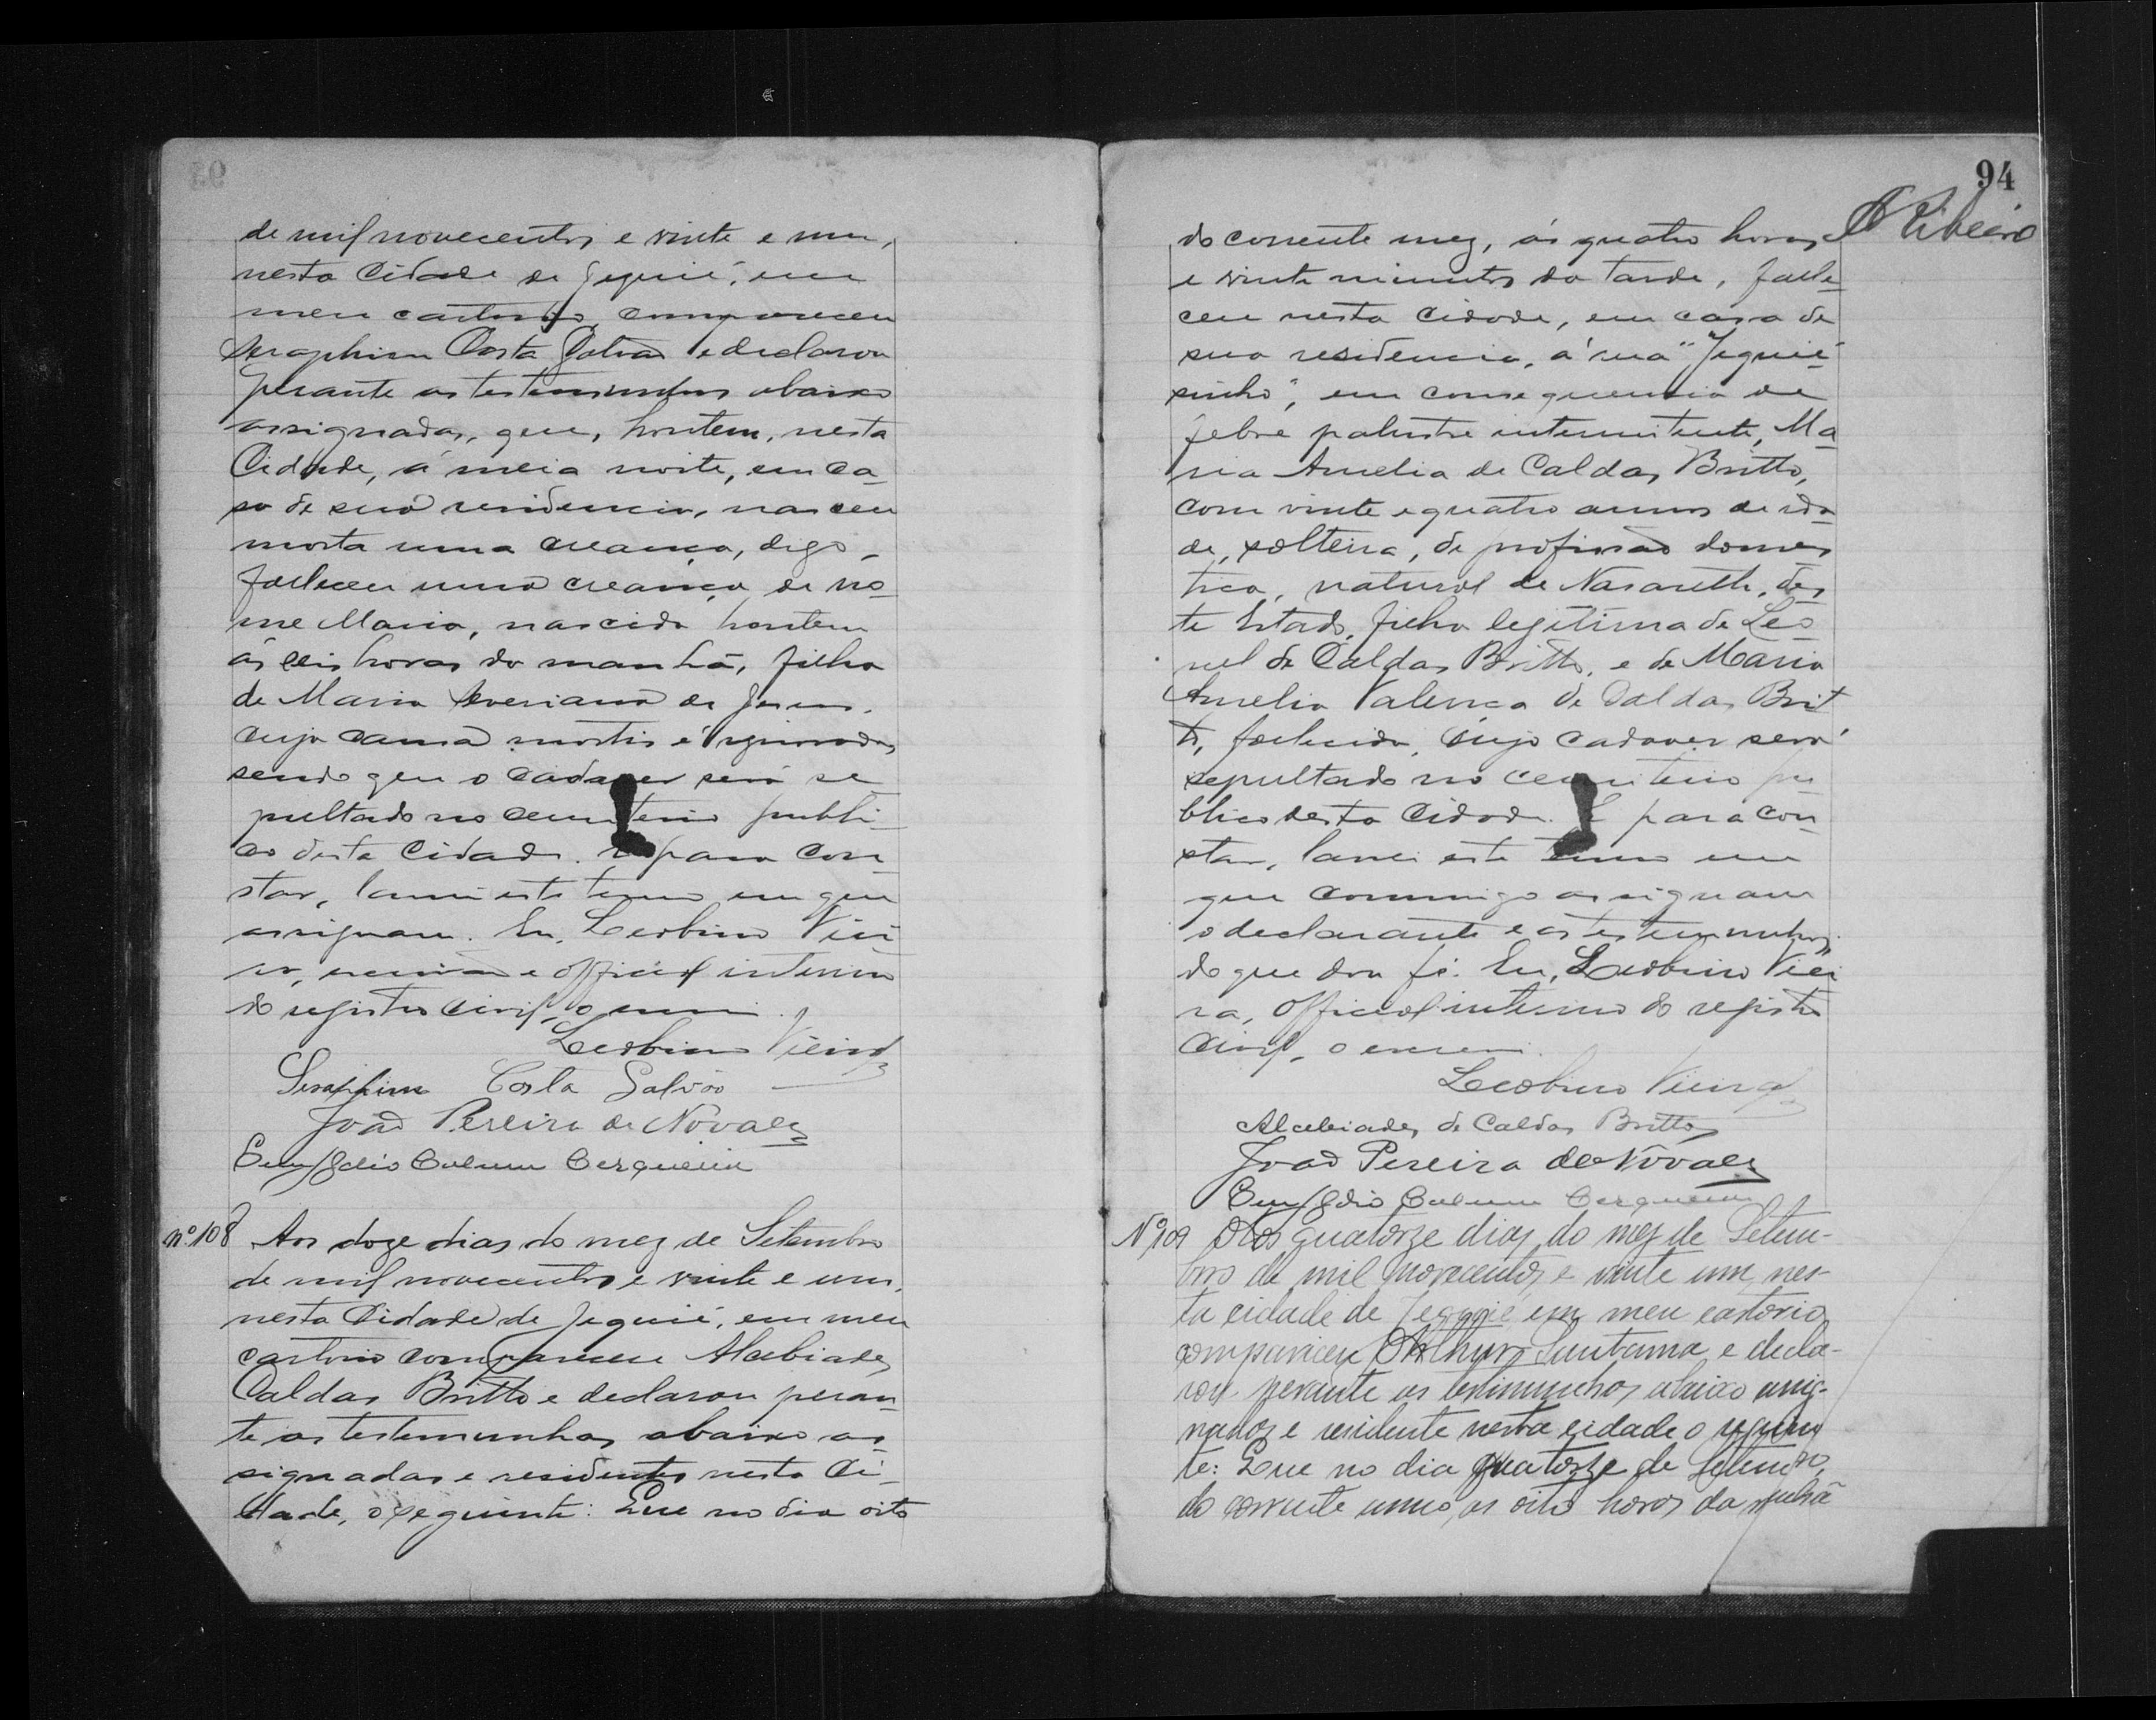 de mil novecentos e vinte e um,
nesta Cidade de Jequié, em
meu cartorio, compareceu
Seraphim Costa Galvão e declarou
perante as testemunhas abaixo
assignadas, que, hontem, nesta
Cidade, á meia noite, em ca-
sa de sua residencia, nasceu
morta uma creança, digo,
falleceu uma creança de no-
me Maria, nascida hontem
ás seis horas da manhã, filha
de Maria Severiana de Jesus,
cuja causa mortis é ignorada,
sendo que o cadaver será se
pultado no cemiterio publi-
co desta Cidade. E para con-
star, lancei este termo em que
assignam. Eu, Leobino Viei-
ra, escrivão e official interino
do registro civil, o escrevi.
Leobino Vieira
Seraphim Costa Galvão
João Pereira de Novaes
Emygdio Cerqueira
nº 108 Aos doze dias do mez de Setembro
de mil novecentos e vinte e um,
nesta Cidade de Jequié, em meu
cartorio compareceu Alcebiades
Caldas Britto e declarou peran-
te as testemunhas abaixo as-
signadas e residentes nesta Ci-
dade, o seguinte: Que no dia oito
94
Ribeiro
do corrente mez, ás quatro horas
e vinte minutos da tarde, falle-
ceu nesta Cidade, em casa de
sua residencia, á rua "Jequié-
sinho", em consequencia de
febre palustre intermitente, Ma-
ria Amelia de Caldas Britto,
com vinte e quatro annos de ida-
de, solteira, de profissão domes-
tica, natural de Nasareth, des-
te Estado, filha legitima de Leo-
nel de Caldas Britto, e de Maria
Amelia Valença de Caldas Brit
to, fallecida, cujo cadaver será
sepultado no cemiterio pu
blico desta Cidade. E para con-
star, lancei este termo em
que commigo assignam
o declarante e as testemunhas,
do que dou fé. Eu, Leobino Viei
ra, official interino do registro
Civil, o escrevi.
Leobino Vieira
Alcebiades de Caldas Britto
João Pereira de Novaes
Emygdio Cerqueira
Nº 109 Aos quatorze dias do mez de Setem-
bro de mil novecentos e vinte um, nes-
ta cidade de Jequié em meu cartorio
compareceu Arthur Santanna e decla-
rou perante as testimunhas abaixo assig-
nados e residente nesta cidade o seguin
te: Que no dia quatorze de Setembro,
do corrente anno, as oito horas da manhã